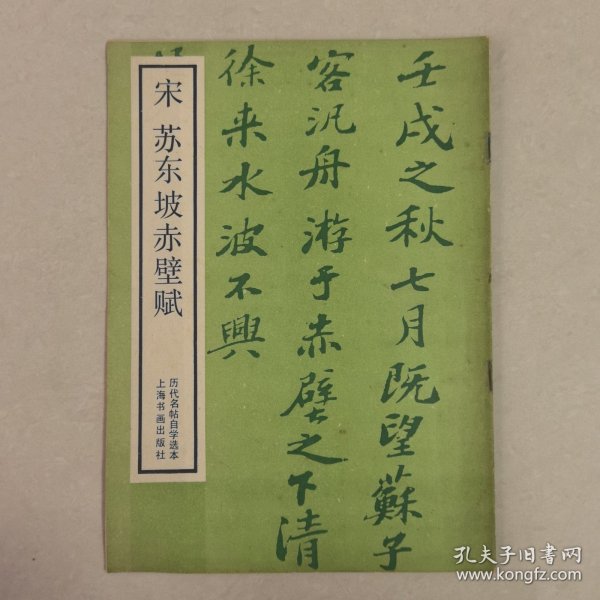 宋 苏东坡赤壁赋
历代名帖自学选本
上海书画出版社
壬戌之秋七月既望蘇子
客汎舟游于赤壁之下清
徐来水波不興
孔夫子旧书网
www.kongfz.com